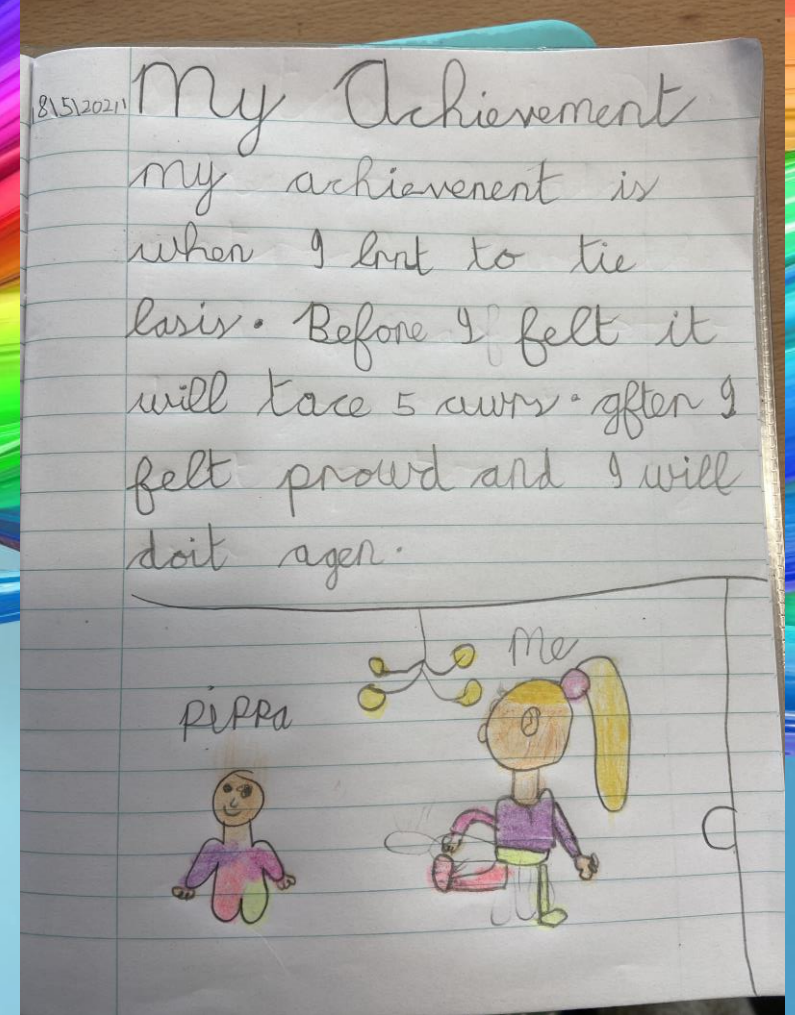 18\5\2021
My Achievement
my achievenent is
when I lrnt to tie
lasis. Before I felt it
will tace 5 awrs. after I
felt prowd and I will
doit agen.
Me
Pippa